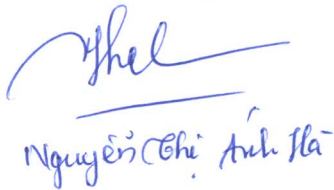 Nguyễn Thị Ánh Hà